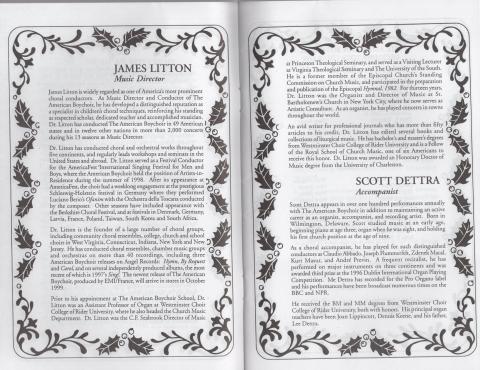 JAMES LITTON
Music Director
James Litton is widely regarded as one of America's most prominent
choral conductors. As Music Director and Conductor of The
American Boychoir, he has developed a distinguished reputation as
a specialist in children's choral techniques, reinforcing his standing
as respected scholar, dedicated teacher and accomplished musician.
Dr. Litton has conducted The American Boychoir in 49 American
states and in twelve other nations in more than 2,000 concerts
during his 15 seasons as Music Director.
Dr. Litton has conducted choral and orchestral works throughout
five continents, and regularly leads workshops and seminars in the
United States and abroad. Dr. Litton served as a Festival Conductor
for the AmericaFest International Singing Festival for Men and
Boys, where the American Boychoir held the position of Artists-in-
Residence during the summer of 1998. After its appearance at
AmericaFest, the choir had a weeklong engagement at the prestigious
Schleswig-Holstein festival in Germany where they performed
Luciano Berio's Ofanim with the Orchestra della Toscana conducted
by the composer. Other seasons have included appearances with
the Berkshire Choral Festival, and at festivals in Denmark, Germany,
Latvia, France, Poland, Taiwan, South Korea and South Africa.
Dr. Litton is the founder of a large number of choral groups,
including community choral ensembles, college, church and school
choirs in West Virginia, Connecticut, Indiana, New York and New
Jersey. He has conducted choral ensembles, chamber music groups,
and orchestras on more than 40 recordings, including three
American Boychoir releases on Angel Records: Hymn, By Request
and Carol, and on several independently produced albums, the most
recent of which is 1997's Sing!. The newest release of The American
Boychoir, produced by EMI/France, will arrive in stores in October
1999.
Prior to his appointment at The American Boychoir School, Dr.
Litton was an Assistant Professor of Organ at Westminster Choir
College of Rider University, where he also headed the Church Music
Department. Dr. Litton was the C.F. Seabrook Director of Music
at Princeton Theological Seminary, and served as a Visiting Lecturer
at Virginia Theological Seminary and The University of the South.
He is a former member of the Episcopal Church's Standing
Commission on Church Music, and participated in the preparation
and publication of the Episcopal Hymnal, 1982. For thirteen years,
Dr. Litton was the Organist and Director of Music at St.
Bartholomew's Church in New York City, where he now serves as
Artistic Consultant. As an organist, he has played concerts in towns
throughout the world.
An avid writer for professional journals who has more than fifty
articles to his credit, Dr. Litton has edited several books and
collections of liturgical music. He has bachelor's and master's degrees
from Westminster Choir College of Rider University and is a Fellow
of the Royal School of Church Music, one of an Americans to
receive this honor. Dr. Litton was awarded an Honorary Doctor of
Music degree from the University of Charleston.
SCOTT DETTRA
Accompanist
Scott Dettra appears in over one hundred performances annually
with The American Boychoir in addition to maintaining an active
career as an organist, accompanist, and recording artist. Born in
Wilmington, Delaware, Scott studied music at an early age,
beginning piano at age three, organ when he was eight, and holding
his first church position at the age of nine.
As a choral accompanist, he has played for such distinguished
conductors as Claudio Abbado, Joseph Flummerfelt, Zdeněk Macal,
Kurt Masur, and André Previn. A frequent recitalist, he has
performed on major instruments on three continents and was
awarded third prize at the 1996 Dublin International Organ Playing
Competition. Mr. Dettra has recorded for the Pro Organo label
and his performances have been broadcast numerous times on the
BBC and NPR.
He received the BM and MM degrees from Westminster Choir
College of Rider University, both with honors. His principal organ
teachers have been Joan Lippincott, Dennis Keene, and his father,
Lee Dettra.